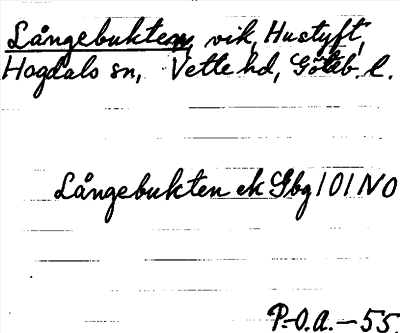 Långebukten, vik, Hustyft,
Hogdals sn, Vette hd, Göteb. l.
Långebukten ek Gbg 101 NO
P.-O.A.-55.